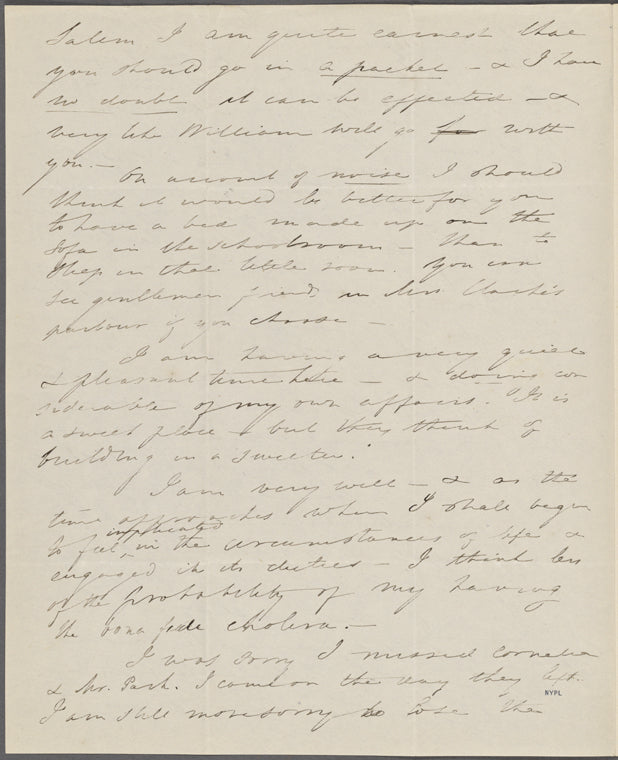 Salem I am quite earnest that
you should go in a packet – & I have
no doubt it can be effected – &
very like William will go for with
you. –
On account of noise I should
think it would be better for you
to have a bed made up on the
sofa in the schoolroom – than to
sleep in that little room. You can
see gentlemen friends in Mrs Clarke's
parlour if you choose –
I am having a very quiet
& pleasant time here – & doing con
siderable of my own affairs. It is
a sweet place – but they think of
building in a sweeter.
I am very well – & as the
time approaches when I shall begin
implicated
to feel in the circumstances of life &
engaged in its duties – I think less
of the probability of my having
the bona fide cholera. –
I was sorry I missed Cornelia
& Mr. Park. I came on the day they left.
I am still more sorry to lose the
NYPL